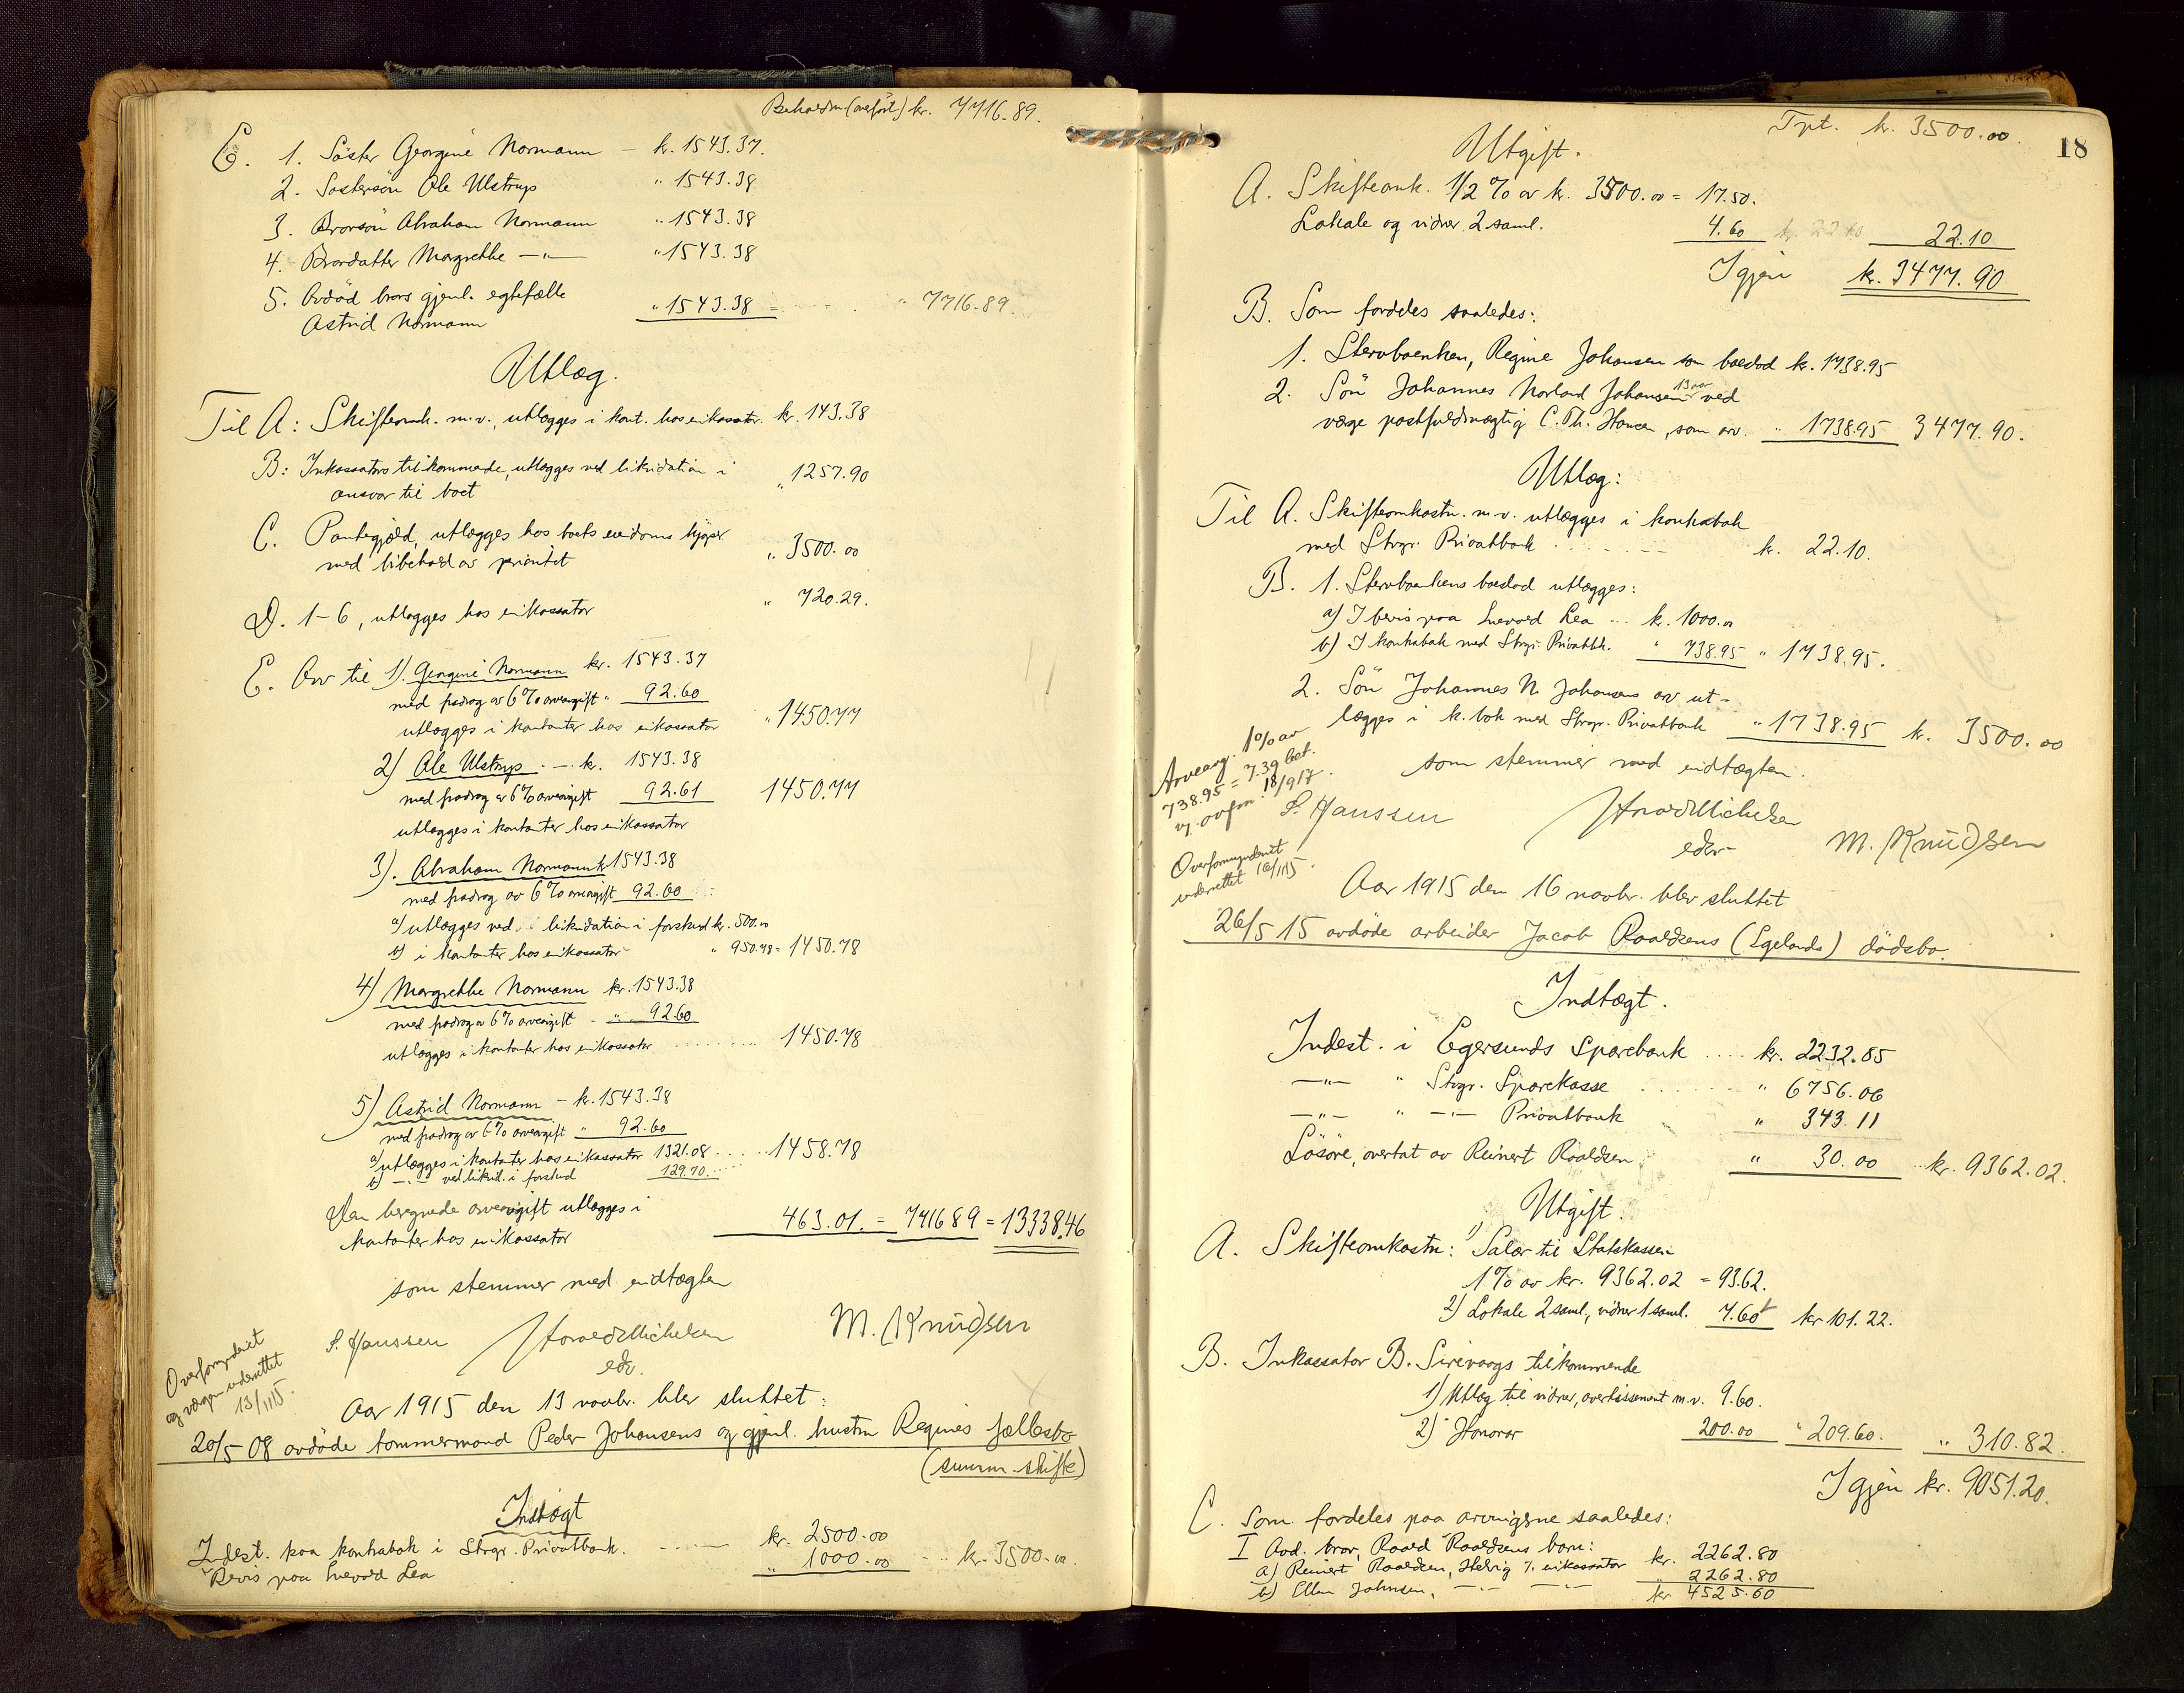 Beholdn. (overført) kr. 7716.89.
E. 1. Søster Georgine Normann – kr. 1543.37.
2. Søstersøn Ole Ulstrup " 1543.38
3. Brorsøn Abraham Normann " 1543.38
4. Brordatter Margrethe —"— " 1543.38
5. Avdød brors gjenl. egtefælle
Astrid Normann " 1543.38 = " 7716.89.
Utlæg.
Til A: Skifteomk. m.v., utlægges i kont. hos inkassator. kr. 143.38
B: Inkassators tilkommende, utlægges ved likvidation i
ansvar til boet " 1257.90
C. Pantegjæld, utlægges hos boets eiendoms kjøper
med bibehold av prioritet " 3500.00
D. 1-6, utlægges hos inkassator " 720.29.
E. Arv til 1). Georgine Normann kr. 1543.37
med fradrag av 6% arveavgift " 92.60
utlægges i kontanter hos inkassator " 1450.77
2) Ole Ulstrup . — . kr. 1543.38
med fradrag av 6% arveavgift 92.61 1450.77
utlægges i kontanter hos inkassator
3). Abraham Normann kr 1543.38
med fradrag av 6% arveavgift 92.60
a) utlægges ved likvidation i forskud kr. 500.00
b) i kontanter hos inkassator " 950.78 = 1450.78
4) Margrethe Normann kr. 1543.38
med fradrag av 6% arveavgift " 92.60
utlægges i kontanter hos inkassator 1450.78
5) Astrid Normann – kr. 1543.38
med fradrag av 6% arveavgift " 92.60
a) utlægges i kontanter hos inkassator 1321.08 1458.78
b) —"— ved likvid. i forskud 129.70
Den beregnede arveavgift utlægges i
kontanter hos inkassator 463.01. = 7716.89 = 13338.46
som stemmer med indtægten
S. Janssen M. Knudsen
edv.
Overformynderiet
og vergen underrettet
13/11 15.
Aar 1915 den 13 novbr. blev sluttet:
20/5 08 avdøde tømmermand Peder Johansens og gjenl. hustru Regines fællesbo
(summ. skifte)
Indtægt
Indest. paa kontrabok i Stvgr. Privatbank. kr. 2500.00
Bevis paa Lea " 1000.00 kr. 3500.00.
18
Tpt. kr. 3500.00.
Utgift.
A. Skifteomk. 1/2 % av kr. 3500.00 = 17.50.
Lokale og vidner 2 saml. 4.60 22.10
Igjen kr. 3477.90
B. Som fordeles saaledes:
1. Stervboenken, Regine Johansen som boeslod kr. 1738.95
2. Søn Johannes Norland Johansen 13 aar ved
verge postfuldmægtig C. Th. Hansen, som arv. " 1738.95 3477.90.
Utlæg:
Til A. Skifteomkostn. m.v. utlægges i kontrabok
med Stvgr. Privatbank kr. 22.10.
B. 1. Stervboenkens boeslod utlægges:
a) I bevis paa Lea ... kr. 1000.00
b) I kontrabok med Stvgr. Privatbk. " 738.95 " 1738.95.
2. Søn Johannes N. Johansens arv ut-
lægges i k. bok med Stvgr. Privatbank " 1738.95 kr. 3500.00
som stemmer med indtægten.
Arveavg. 1% av
738.95 = 7.39 bet.
18/9 17.
S. Janssen M. Knudsen
edv.
Overformynderiet
underrettet 16/11 15.
Aar 1915 den 16 novbr. blev sluttet
26/5 15 avdøde arbeider Jacob Roaldsens (Egelands) dødsbo.
Indtægt.
Indest. i Egersunds Sparebank .... kr. 2232.85
—"— " Stvgr. Sparekasse " 6756.06
—"— " —"— Privatbank " 343.11
Løsøre, overtat av Reinert Roaldsen " 30.00 .. kr. 9362.02.
Utgift.
A. Skifteomkostn: 1) Salær til Statskassen
1% av kr. 9362.02 = 93.62.
2) Lokale 2 saml., vidner 1 saml. 7.60 kr 101.22.
B. Inkassator B. Sirevaags tilkommende
1) Utlæg til vidner, avertissement m.v. 9.60.
2) Honorar 200.00 " 209.60. " 310.82.
Igjen kr. 9051.20.
C. Som fordeles paa arvingerne saaledes:
I Avd. bror, Roald Roaldsens barn:
a) Reinert Roaldsen, Helvig v. inkassator kr. 2262.80
b) Ellen Johnsen, —"— —"— " 2262.80
kr 4525.60